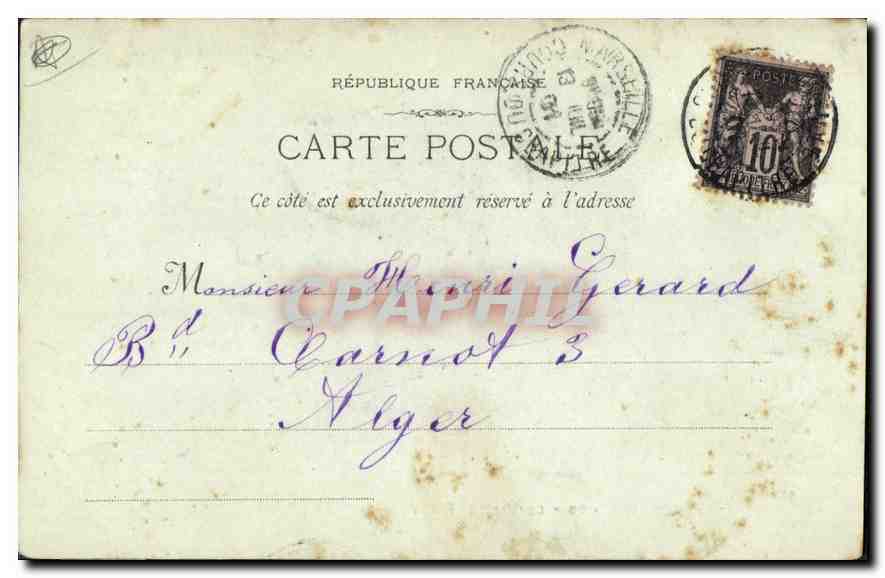 RÉPUBLIQUE FRANÇAISE
MARSEILLE
CARTE POSTALE
POSTE
10
Ce côté est exclusivement réservé à l'adresse
Monsieur Henri Gerard
CPAPHIL
Bd Carnot 3
Alger